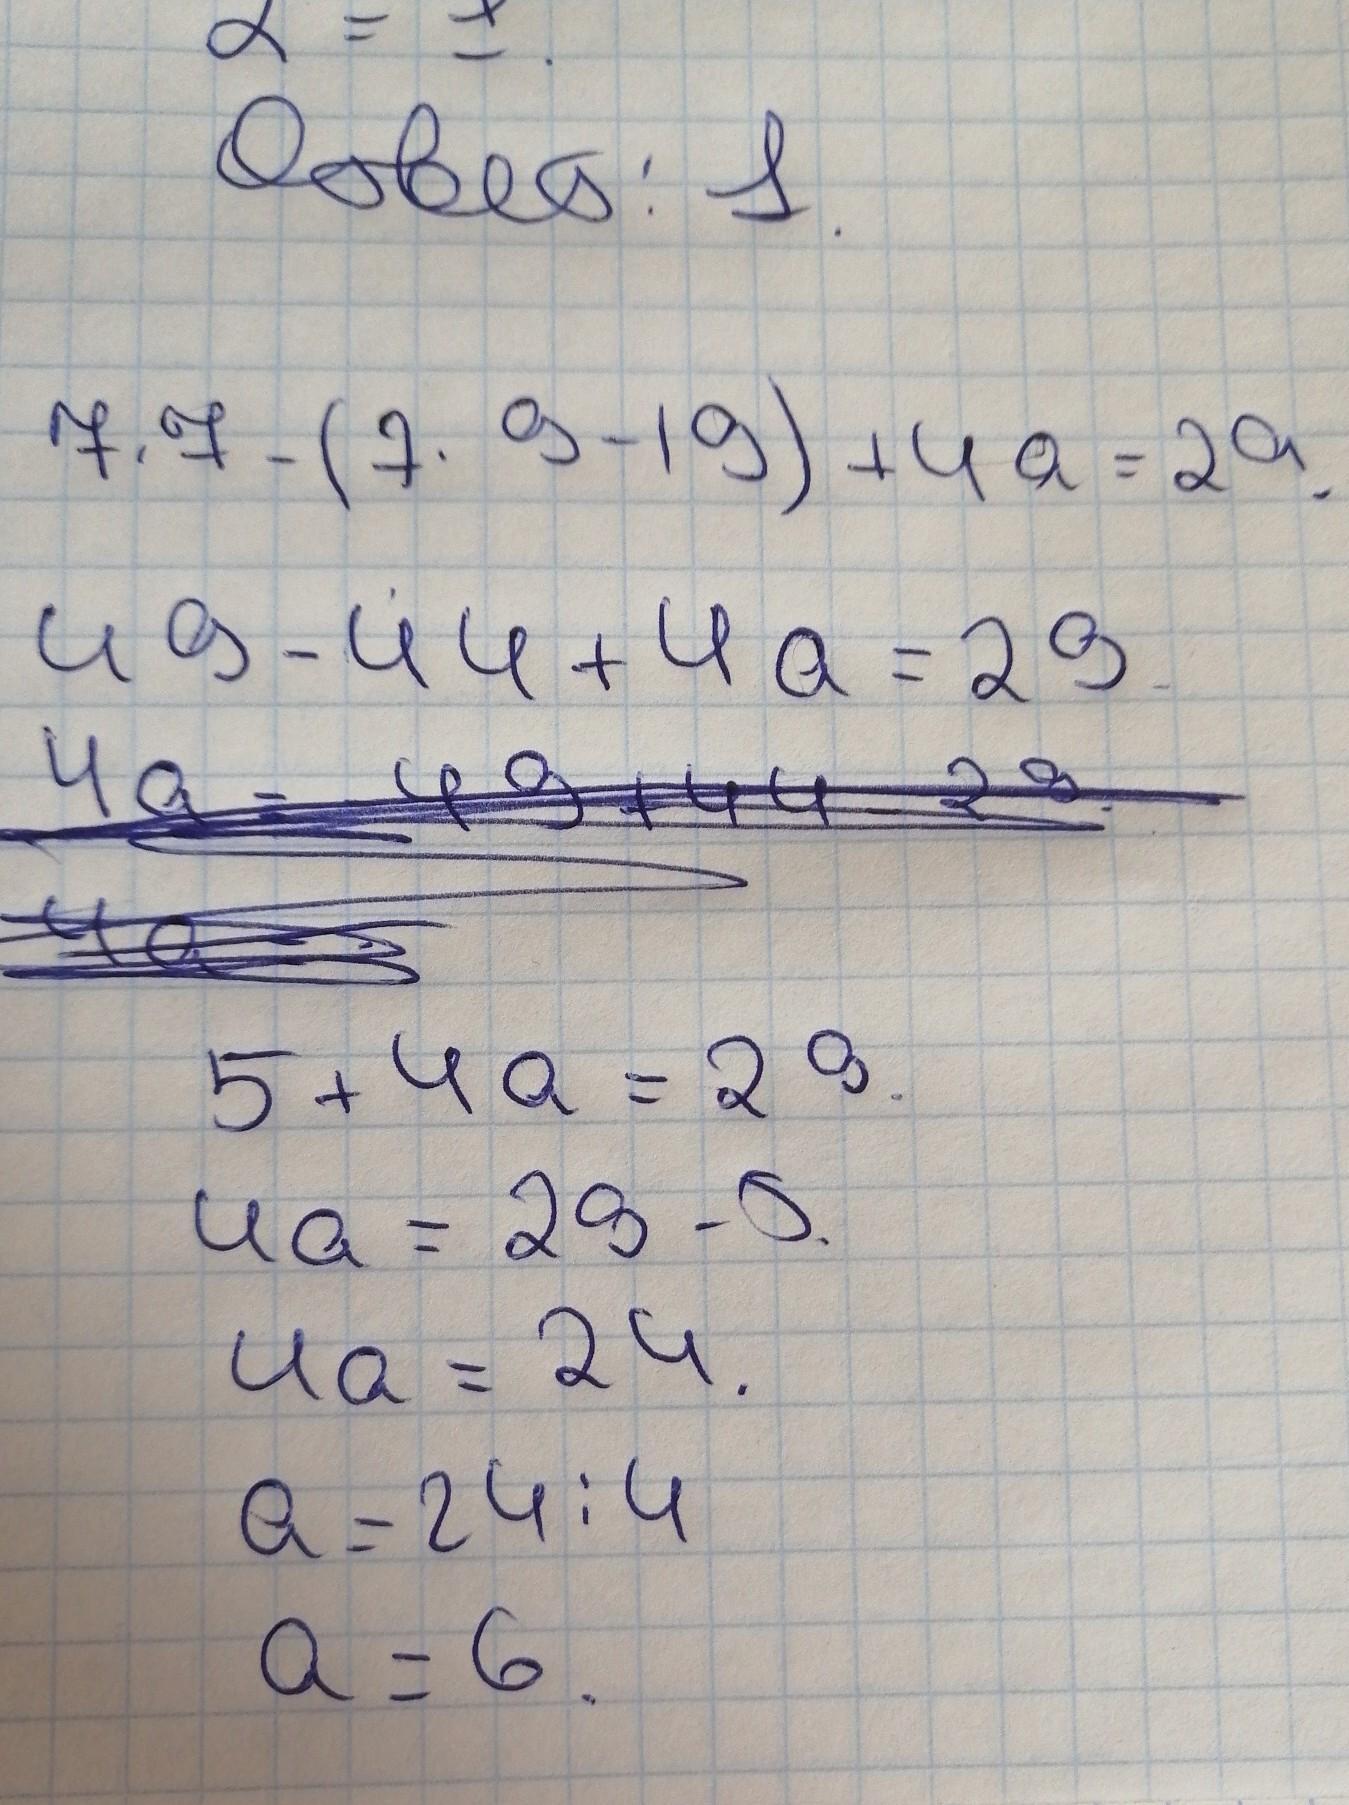 2 = ±.
Ответ: 1.
7.7-(7.9-19)+4a=29.
49-44+4a=29.
4a = 49+44 29.
4a
5+4a=29.
4a=29-5.
4a=24.
a=24:4
a=6.